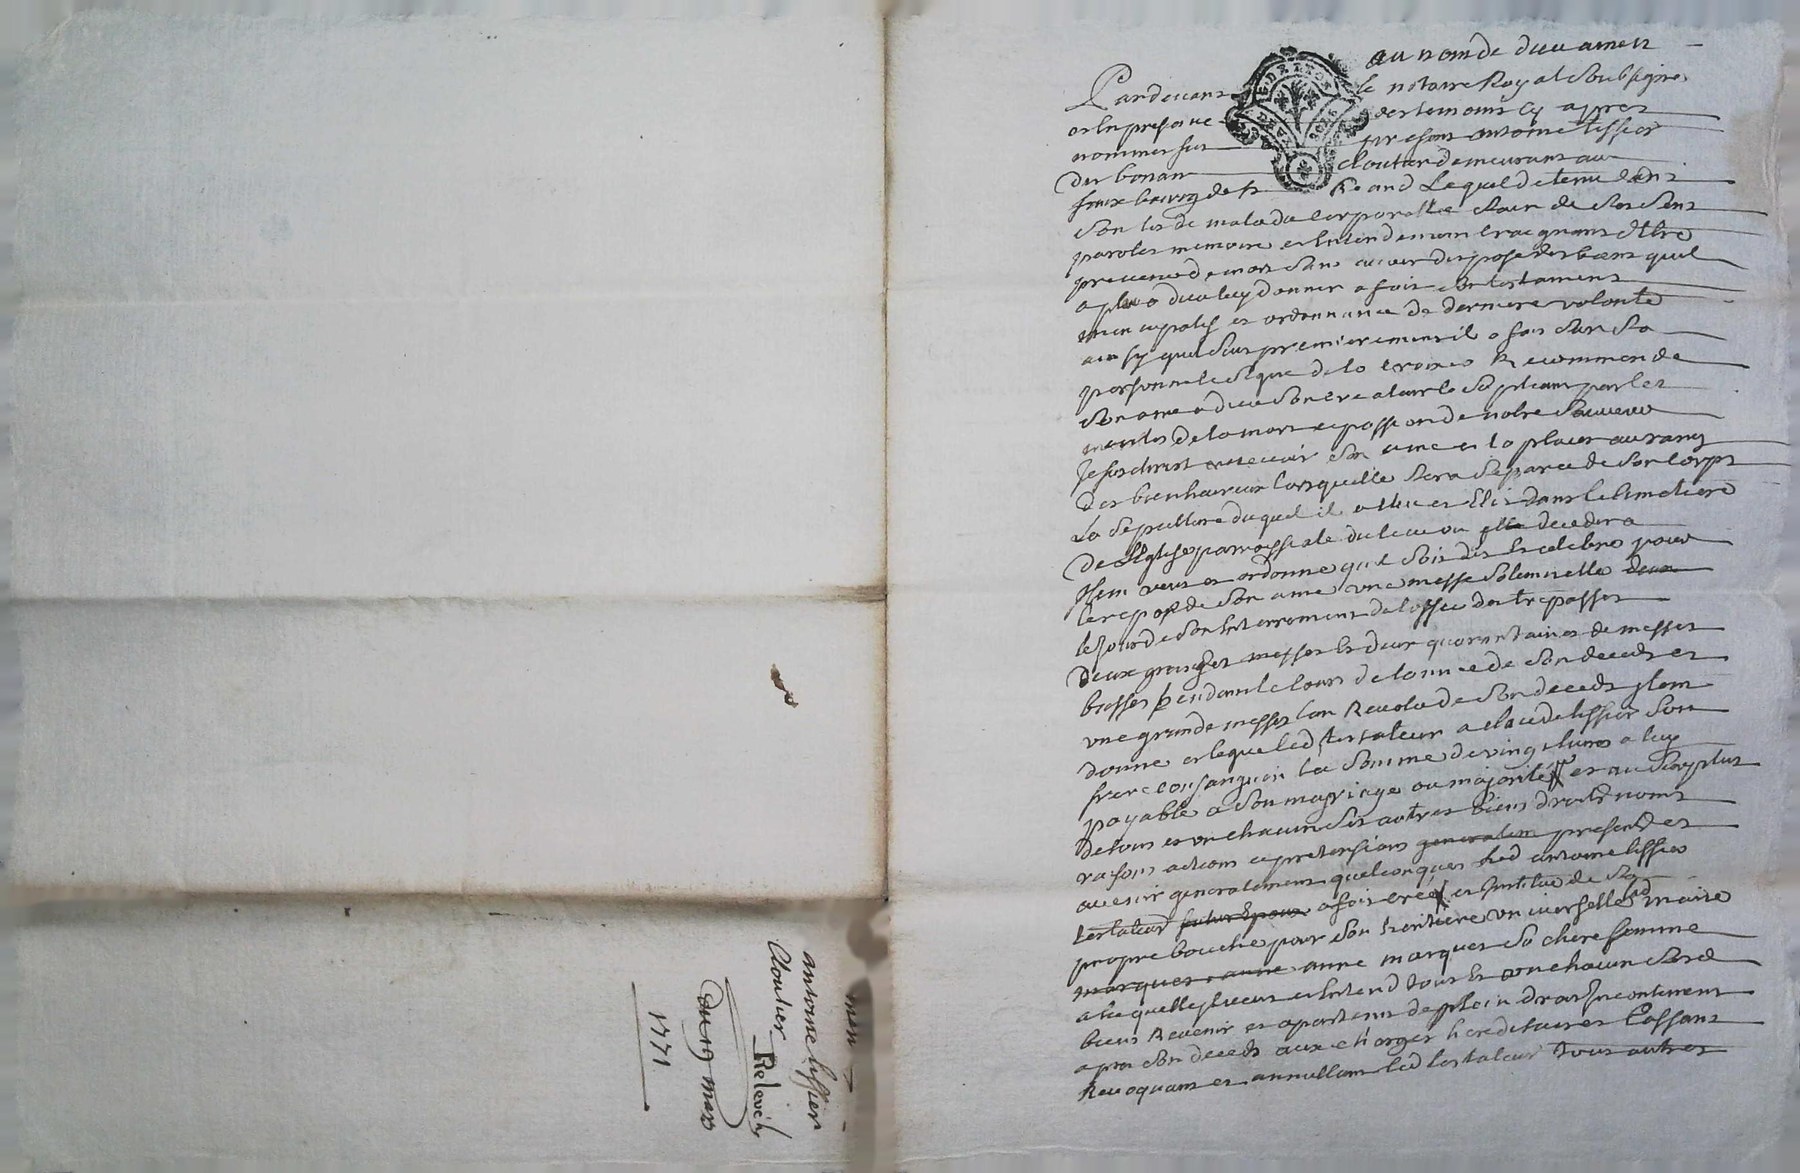 au nom de dieu amen
Pardevant le notaire Royal Soubsigne
et En presence des temoins cy apres
nommes fut present antoine tissier
cloutier demeurant au
faux bourg de Lequel detenu dans
Son lit de maladie corporelle Sain de Ses Sens
parolles memoire et Entendement craignant d'Etre
prevenu de mort Sans avoir dispose des biens quil
a plu a dieu luy donner a fait Son testament
nuncupatif et ordonnance de derniere volonte
ainsy que Suit premierement il a fait Sur Sa
personne le Signe de la croix Recommende
Son ame a dieu Son createur le Supliant par les
merites de la mort et passion de notre Sauveur
Jesus christ recevoir Son ame et la placer au rang
des bienheureux lorsquelle Sera Separee de Son corps
La Sepulture duquel il a Elit dans le Cimetiere
de L'Eglise parroissiale du lieu ou decedera
Item veut et ordonne quil Soit dit Et celebre pour
le repos de Son ame une messe Solemnelle deux
le Jour de Son Enterrement de loffice des trepasses
deux grandes messes Et deux quarantaines de messes
basses pendant le cours de lannee de Son deceds et
une grande messe lan Revolu de Son deceds Item
donne et legue led testateur a tissier Son
frere consanguin la Somme de vingt livres a luy
payable a Son mariage ou majorité et au Surplus
de tous et un chacun Ses autres biens droits noms
raisons actions et pretensions generalem presents et
avenir generalement quelconques led antoine tissier
testateur futur Epoux a fait creé et Institue de Sa
propre bouche pour Son heritiere universelle marie
marques anne anne marques Sa chere femme
a laquelle Il veut et Entend tous Et un chacun Sesd
biens Revenir et apartenir de plein droit Incontinent
apres Son deceds aux charges hereditaires Cassant
Revoquant et annullant led testateur tous autres
antoine tissier
Cloutier
Relevé
Du 19 mars
1771